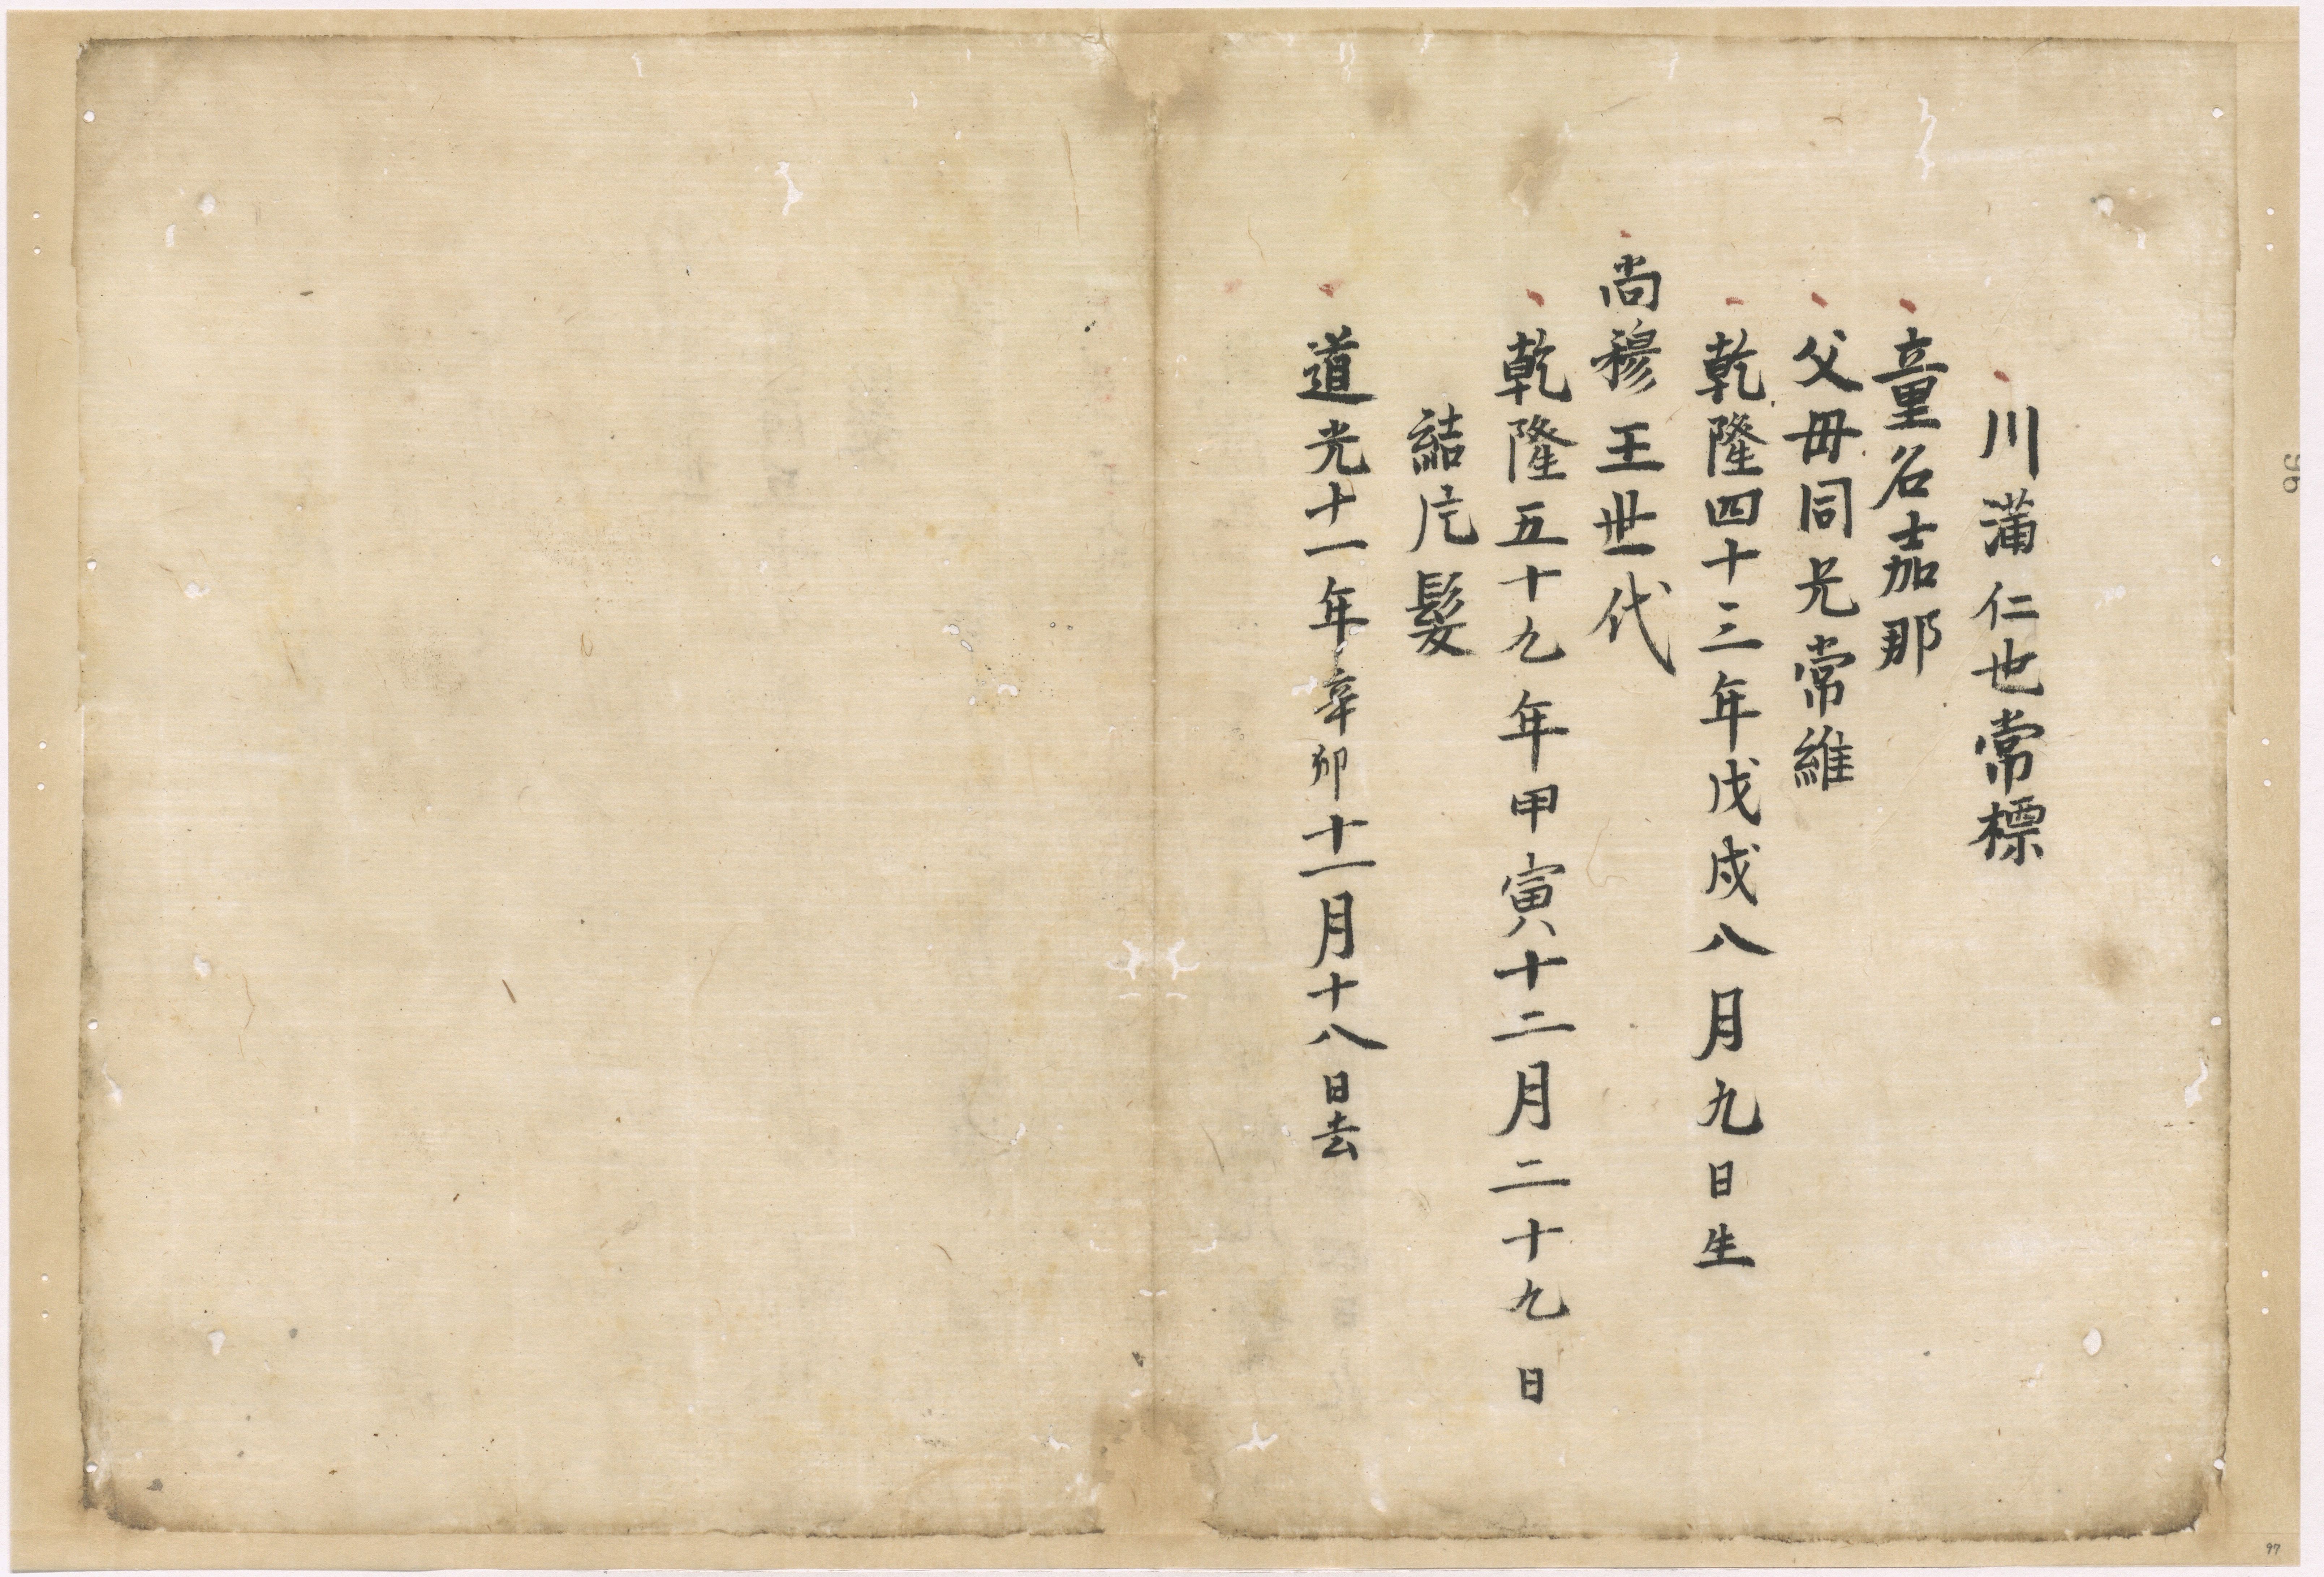 川滿仁也常標
童名嘉那
父毋同兄常維
乾隆四十三年戊戌八月九日生
尚穆王世代
乾隆五十九年甲寅十二月二十九日
結片髮
道光十一年辛卯十一月十八日去
95
97